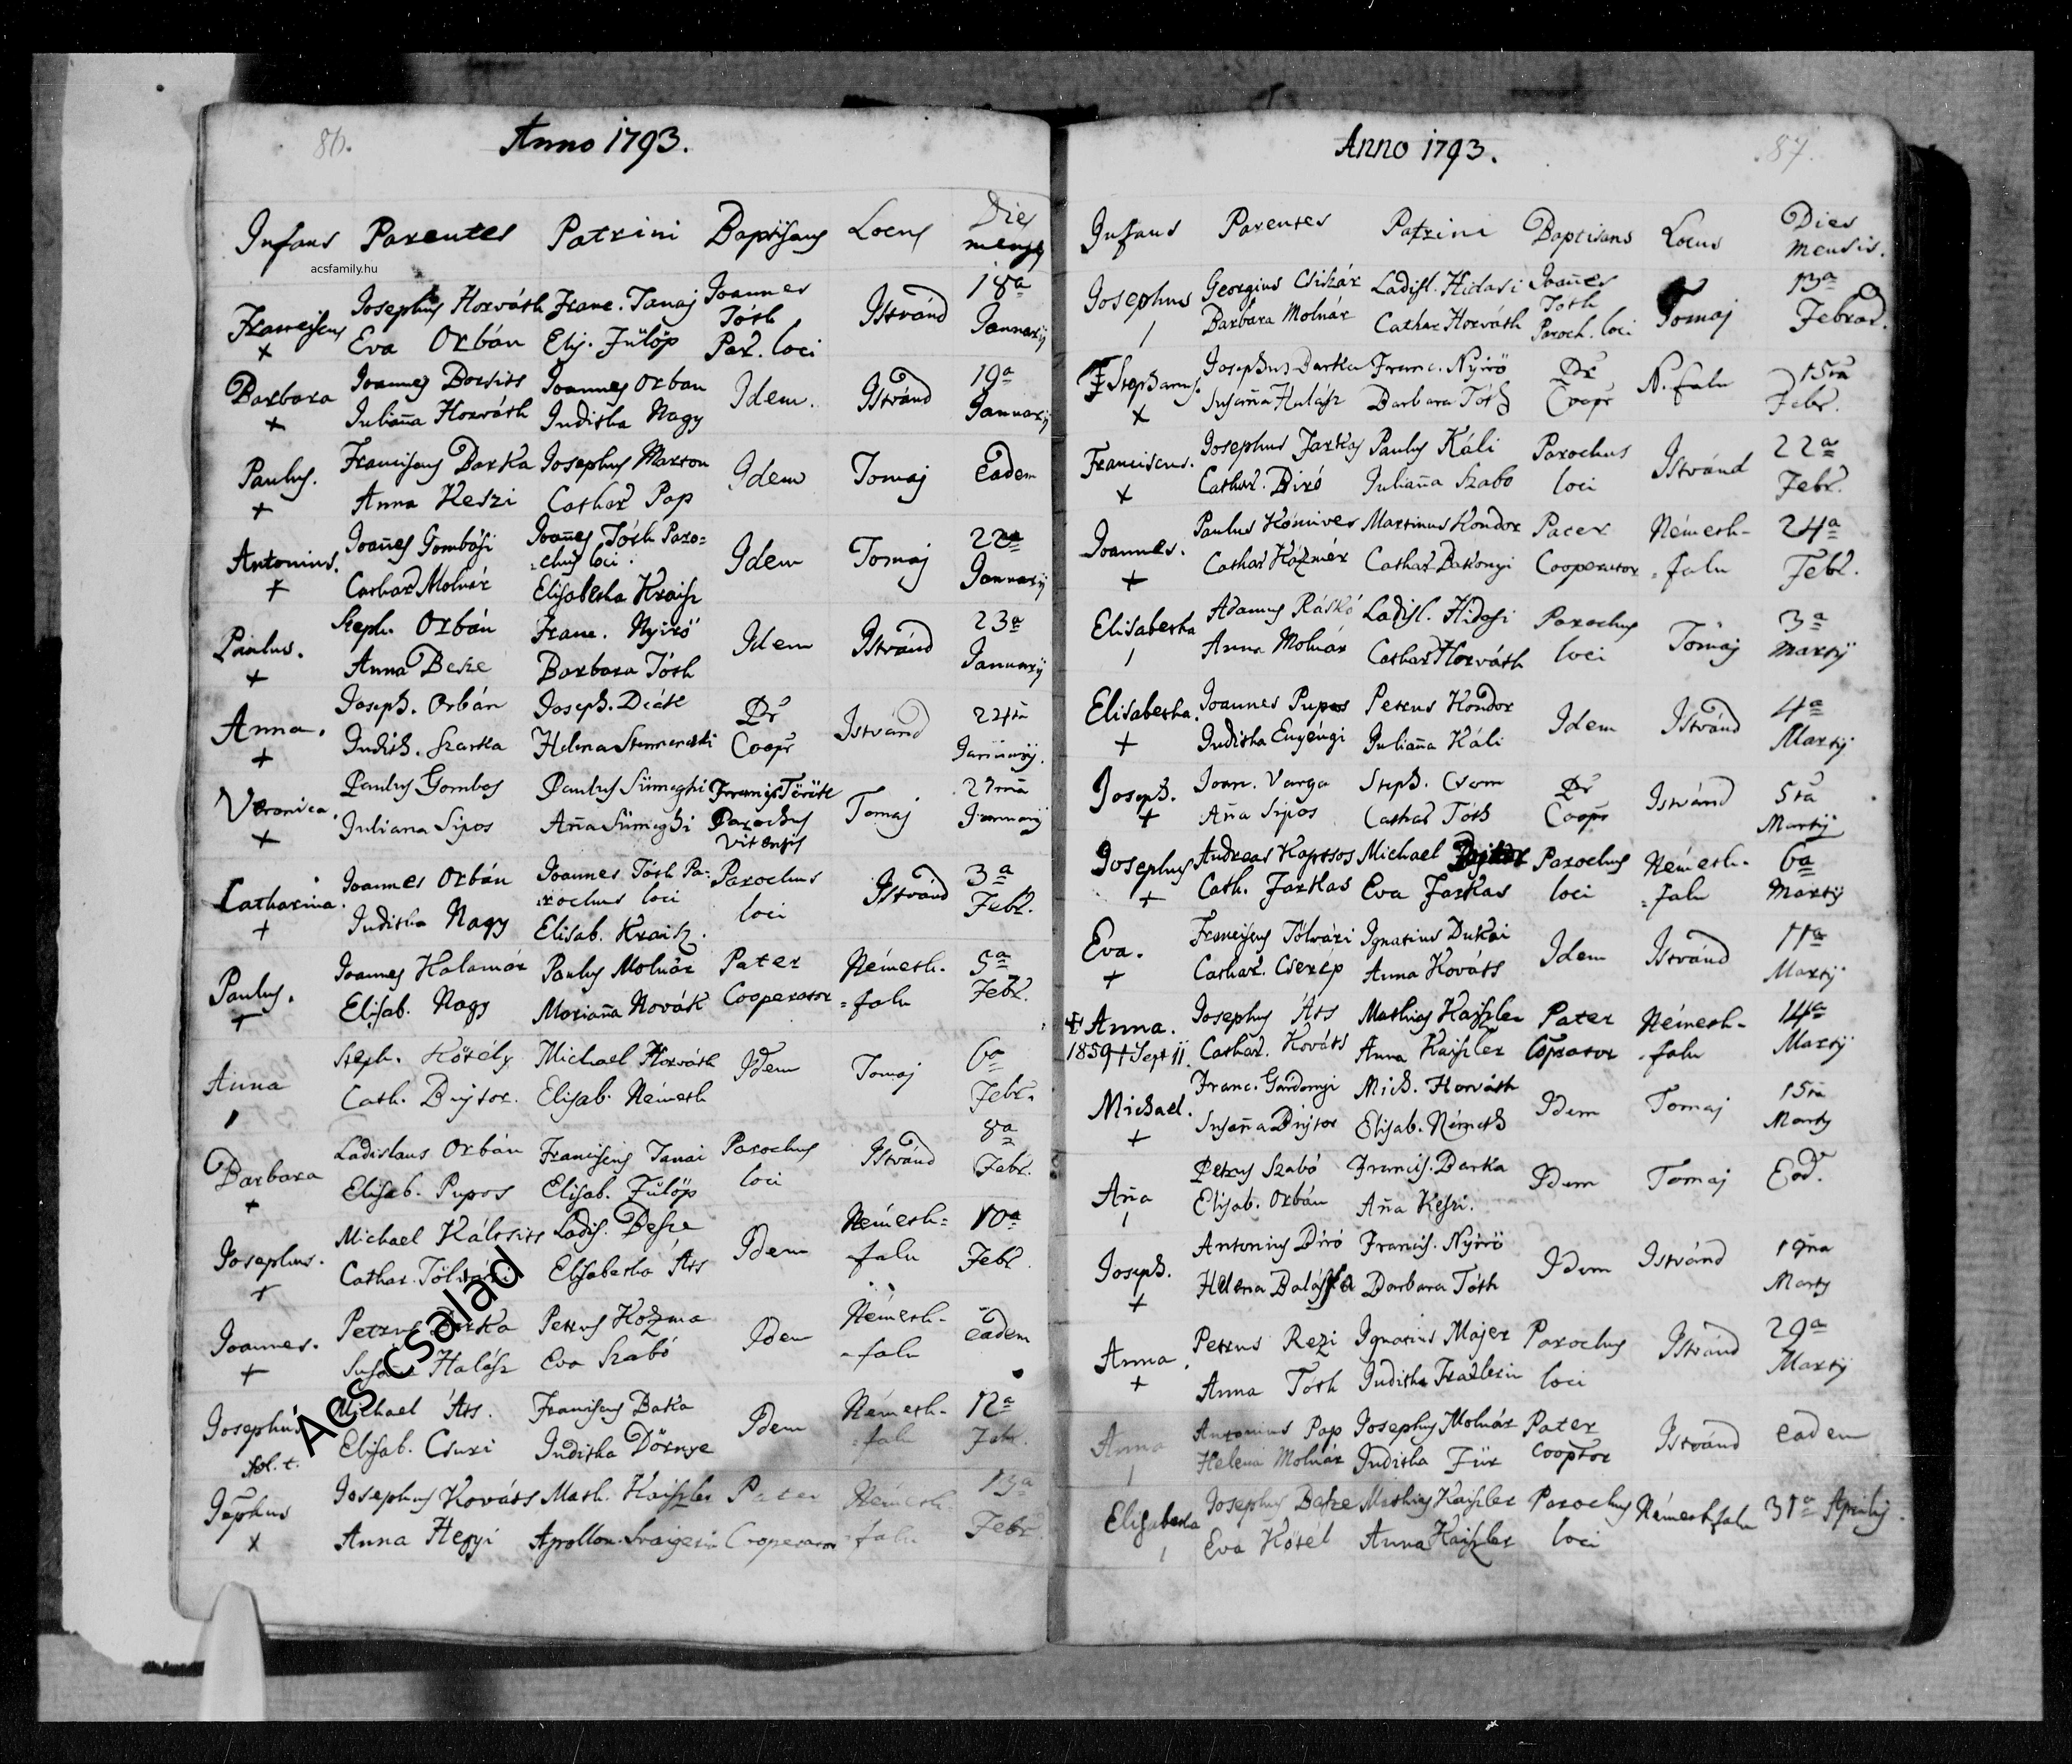 86.
Anno 1793.
Infans Parentes Patrini Baptisans Locus Dies mensis
acsfamily.hu
Franciscus Josephus Horváth Franc. Tanaj Joannes Tóth Istvánd 18a
x Eva Orbán Elis. Fülöp Par. loci Januarij
Barbara Joannes Borsits Joannes Orban Idem. Istvánd 19a
x Julian̄a Horváth Juditha Nagy Januarij
Paulus. Franciscus Barka Josephus Marton Idem Tomaj Eadem
x Anna Keszi Cathar Pap
Antonius. Joan̄es Gombási Joan̄es Tóth Paro= Idem Tomaj 22a
+ Cathar Molnár chus loci. Januarij
Elisabetha Kraisz
Paulus. Steph. Orbán Franc. Nyirö Idem Istvánd 23a
+ Anna Besze Barbara Tóth Januarij
Anna. Joseph. Orbán Joseph. Deák Pr Istvánd 24ta
+ Judith. Szarka Helena Coopr Januarij.
Veronica. Paulus Gombos Paulus Sümeghi Francis Török Tomaj 27ma
x Juliana Sipos An̄a Sümeghi Parochus Januarij
Vitensis
Catharina. Joannes Orbán Joannes Tóth Pa= Parochus Istvánd 3a
+ Juditha Nagy rochus loci loci Febr.
Elisab. Kraisz.
Paulus. Joannes Halamár Paulus Molnár Pater Németh- 5a
+ Elisab. Nagy Marian̄a Novák Cooperator =falu Febr.
Anna Steph. Kötély Michael Horváth Idem Tomaj 6a
Cath. Bújtor. Elisab. Németh Febr.
Barbara Ladislaus Orbán Franciscus Tanai Parochus Istvánd 8a
+ Elisab. Pupos Elisab. Fülöp loci Febr.
Josephus. Michael Kálosits Ladis. Besze Idem Németh= 10a
+ Cathar. Tölvári Elisabetha Áts falu Febr.
Joannes. Petrus Barka Petrus Kozma Idem Németh- eadem
+ Susan̄a Halász Eva Szabó =falu
Josephus Michael Áts. Franciscus Baka Idem Németh- 12a
Elisab. Csuri Juditha Dörnye =falu Febr.
Jophus Josephus Kováts Math. Kaiszler Pater Németh- 13a
x Anna Hegyi Apollon. Cooperator =falu Febr.
Acs család
Anno 1793.
87.
Infans Parentes Patrini Baptisans Locus Dies mensis.
Josephus Georgius Csiszár Ladisl. Hidasi Joan̄es Tomaj 13a
/ Barbara Molnár Cathar Horváth Tóth Februar.
Paroch. loci
Stephanus. Josephus Barka Franc. Nyirö Pr N. falu 15ta
x Susan̄a Halász Barbara Tóth Coopr Febr.
Franciscus. Josephus Farkas Paulus Káli Parochus Istvánd 22a
x Cathar. Biró Julian̄a Szabo loci Febr.
Joannes. Paulus Kőmives Martinus Kondor Pater Németh- 24a
+ Cathar Kázmér Cathar Bakonyi Cooperator =falu Febr.
Elisabetha Adamus Ráskó Ladisl. Hidasi Parochus Tomaj 3a
/ Anna Molnár Cathar Horváth loci Martij
Elisabetha. Joannes Pupos Petrus Kondor Idem Istvánd 4a
+ Juditha Enyéngi Julian̄a Káli Martij
Joseph. Joan. Varga Steph. Csom Pr Istvánd 5ta
+ An̄a Sipos Cathar Tóth Coopr Martij
Josephus Andreas Kaptsos Michael Parochus Németh- 6a
+ Cath. Farkas Eva Farkas loci =falu Martij
Eva. Franciscus Tölvári Ignatius Dukai Idem Istvánd 11a
+ Cathar. Cserép Anna Kováts Martij
Anna. Josephus Áts Mathias Kaiszler Pater Németh- 14a
1859 + Sept 11. Cathar. Kováts Anna Kaiszler Coprator =falu Martij
Michael. Franc. Gárdonyi Mich. Horváth Idem Tomaj 15ta
+ Susan̄a Bújtor Elisab. Németh Martij
An̄a Petrus Szabó Francis. Barka Idem Tomaj Eod.
/ Elisab. Orbán An̄a Keszi.
Joseph. Antonius Biró Francis. Nyirö Idem Istvánd 19na
+ Helena Balássa Barbara Tóth Martij
Anna. Petrus Rezi Ignatius Majer Parochus Istvánd 29a
+ Anna Toth Juditha loci Martij
Anna Antonius Pap Josephus Molnár Pater Istvánd eadem
/ Helena Molnár Juditha Für Cooptor
Elisabetha Josephus Besze Mathias Kaiszler Parochus Némethfalu 31a Aprilij.
/ Eva Kötel Anna Kaiszler loci